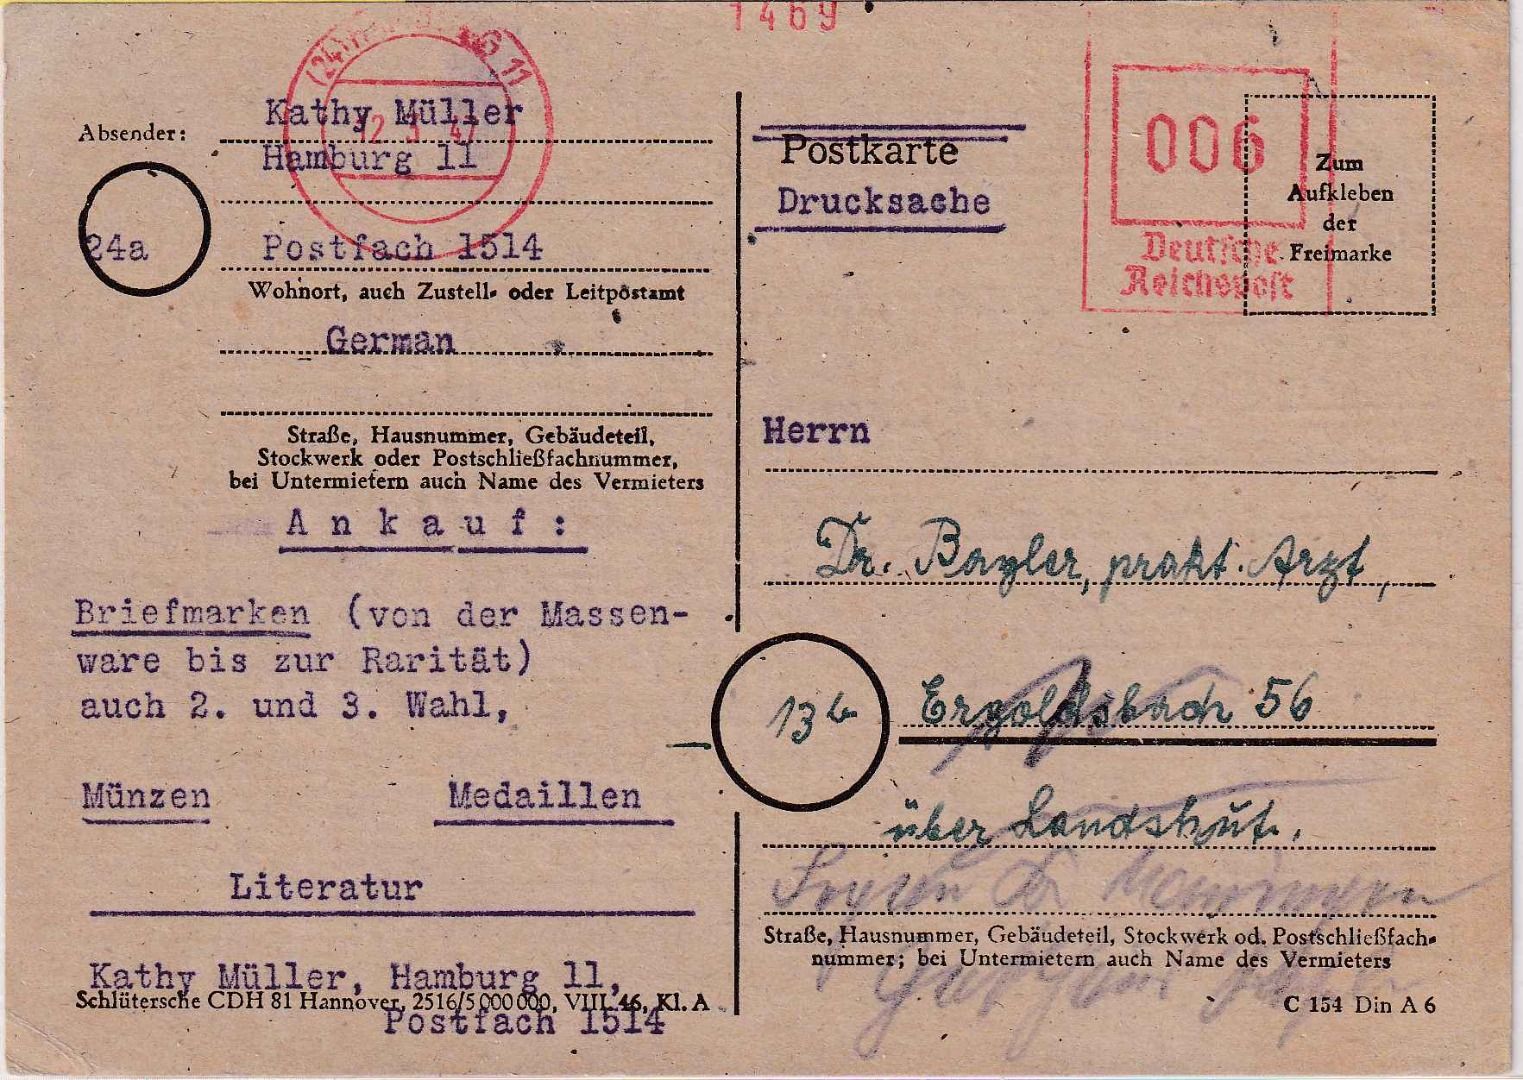 1469
(24) HAMBURG 11
Absender:
Kathy Müller
Hamburg 11
24a
Postfach 1514
Wohnort, auch Zustell- oder Leitpostamt
German
Straße, Hausnummer, Gebäudeteil,
Stockwerk oder Postschließfachnummer,
bei Untermietern auch Name des Vermieters
Ankauf:
Briefmarken (von der Massen-
ware bis zur Rarität)
auch 2. und 3. Wahl,
Münzen Medaillen
Literatur
Kathy Müller, Hamburg 11,
Schlütersche CDH 81 Hannover, 2516/5 000 000, VIII. 46, Kl. A
Postfach 1514
Postkarte
Drucksache
006
Deutsche
Reichspost
Zum
Aufkleben
der
Freimarke
Herrn
Dr. Bayler, prakt. Arzt,
13b Ergoldsbach 56
über Landshut.
Straße, Hausnummer, Gebäudeteil, Stockwerk od. Postschließfach-
nummer; bei Untermietern auch Name des Vermieters
C 154 Din A 6